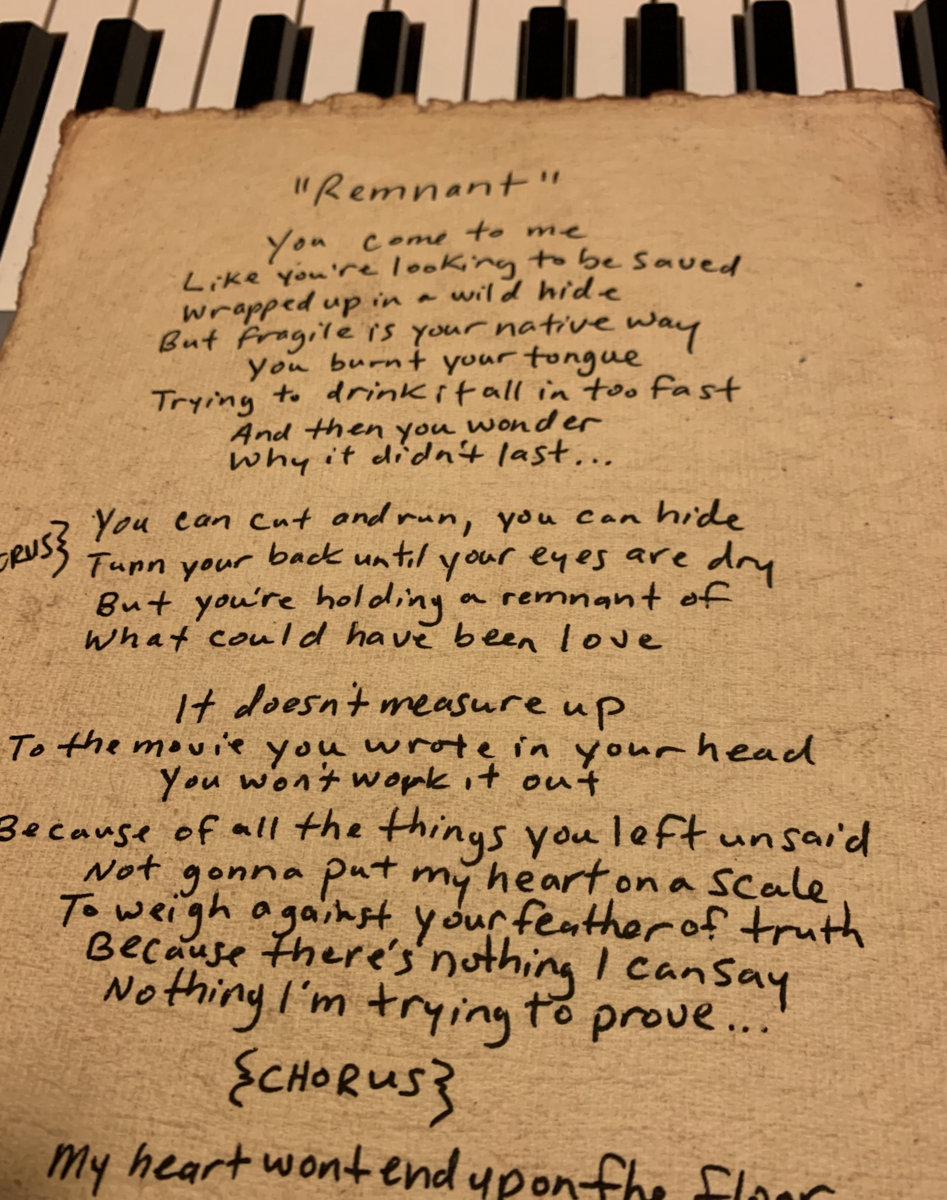 "Remnant"
You come to me
Like you're looking to be saved
Wrapped up in a wild hide
But fragile is your native way
You burnt your tongue
Trying to drink it all in too fast
And then you wonder
Why it didn't last...
You can cut and run, you can hide
ORUS} Turn your back until your eyes are dry
But you're holding a remnant of
What could have been love
It doesn't measure up
To the movie you wrote in your head
You won't work it out
Because of all the things you left unsaid
Not gonna put my heart on a scale
To weigh against your feather of truth
Because there's nothing I can say
Nothing I'm trying to prove...
{CHORUS}
My heart wont end upon the floor